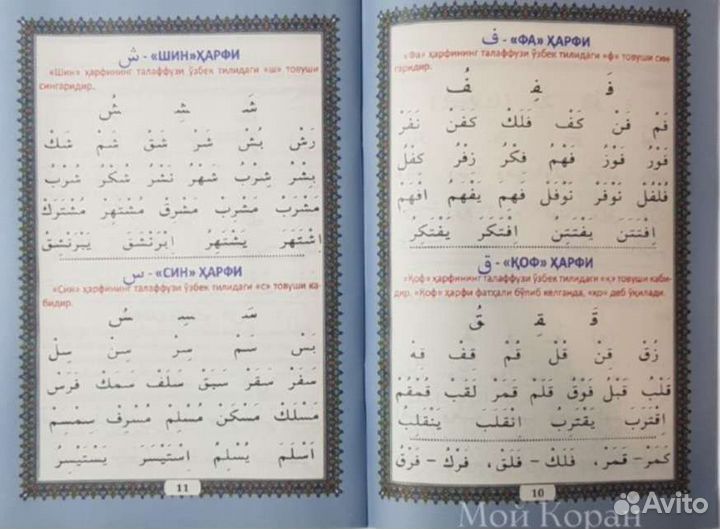 ف - «ФА» ҲАРФИ
«Фа» ҳарфининг талаффузи ўзбек тилидаги «ф» товуши син-
гаридир.
فَ فِ فُ
فَمْ فَنْ كَفْ فَلَكْ كَفَنْ نَفَرْ
فَوْرُ فَوْزُ فَهْمُ فِكْرُ زَفْرُ كَفْلُ
فُلْفُلْ نَوْفَرْ نَوْفَلْ فَهِمَ يَفْهَمُ اِفْهَمْ
اِفْتَتَنَ يَفْتَتِنُ اِفْتَكَرَ يَفْتَكِرُ
ق - «ҚОФ» ҲАРФИ
«Қоф» ҳарфининг талаффузи ўзбек тилидаги «қ» товуши каби-
дир. «Қоф» ҳарфи фатҳали бўлиб келганда, «қо» деб ўқилади.
قَ قِ قُ
زُقْ قِنْ قُلْ قُمْ قِفْ قِهْ
قَلْبُ قَبْلُ فَوْقُ قَلَمْ قَمَرْ لَقَبْ قُمْقُمْ
اِقْتَرَبَ يَقْتَرِبُ اِنْقَلَبَ يَنْقَلِبُ
كَمَرْ – قَمَرْ، فَلَكْ – فَلَقْ، فَرْكْ – فَرْقْ
10
ش - «ШИН» ҲАРФИ
«Шин» ҳарфининг талаффузи ўзбек тилидаги «ш» товуши
сингаридир.
شَ شِ شُ
رَشْ بَشْ شَرْ شَقْ شَمْ شَكْ
بِشْرْ شِرْبُ شَهْرُ نَشْرُ شُكْرُ شُرْبُ
مَشْرَبْ مَشْرِقْ مُشْتَهِرْ مُشْتَرَكْ
اِشْتَهَرَ يَشْتَهِرُ اِبْرَنْشَقَ يَبْرَنْشِقُ
س - «СИН» ҲАРФИ
«Син» ҳарфининг талаффузи ўзбек тилидаги «с» товуши ка-
бидир.
سَ سِ سُ
بَسْ سَمْ سِرْ سِنْ سِلْ
سَفَرْ سَقَرْ سَبَقْ سَلَفْ سَمَكْ فَرَسْ
مَسْلَكْ مَسْكَنْ مُسْلِمْ مُسْرِفْ سِمْسِمْ
اَسْلَمَ يُسْلِمُ اِسْتَيْسَرَ يَسْتَيْسِرُ
11
Мой Коран
Avito